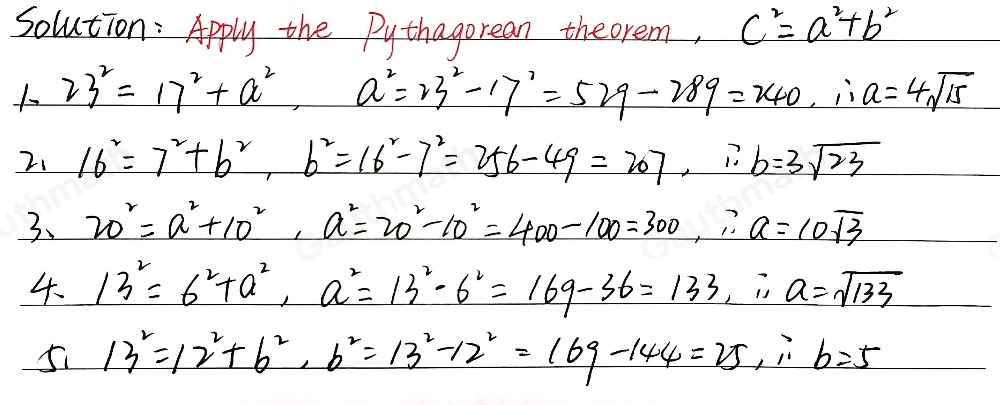 Solution: Apply the Pythagorean theorem, C²=a²+b²
1、23²=17²+a², a²=23²-17²=529-289=240, ∴a=4√15
2、16²=7²+b², b²=16²-7²=256-49=207, ∴b=3√23
3、20²=a²+10², a²=20²-10²=400-100=300, ∴a=10√3
4、13²=6²+a², a²=13²-6²=169-36=133, ∴a=√133
5、13²=12²+b², b²=13²-12²=169-144=25, ∴b=5